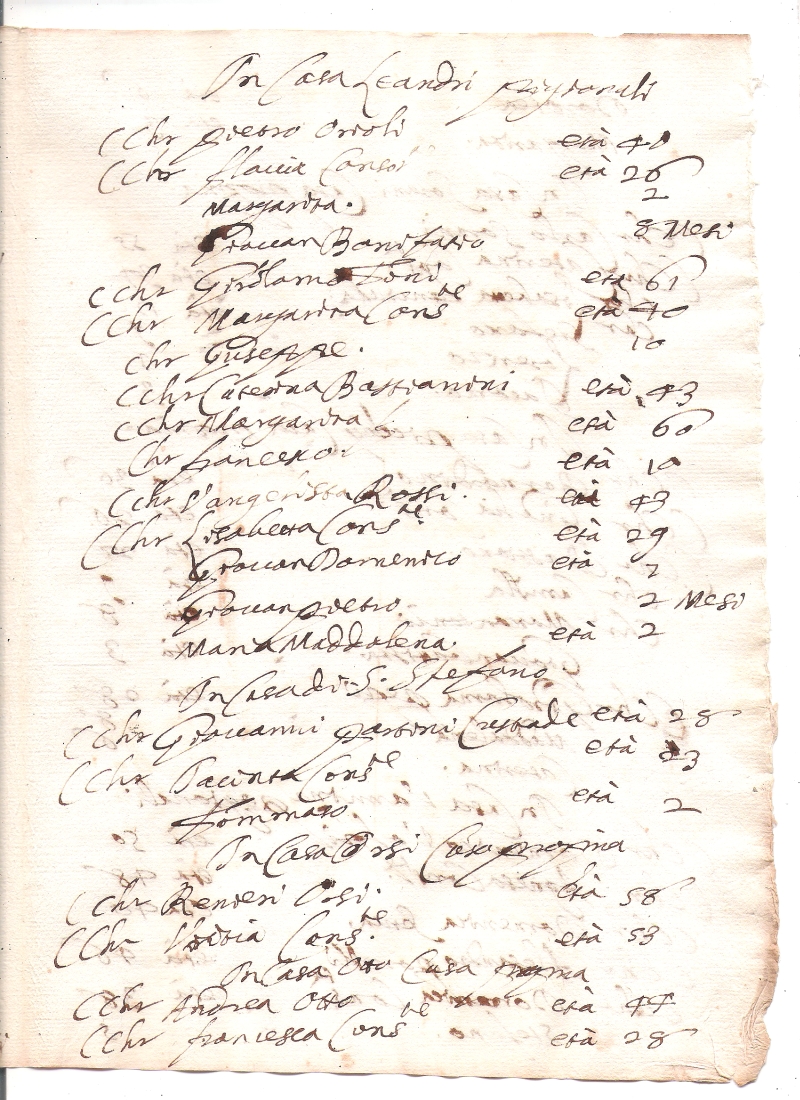 In Casa Leandri pigionali
CChr pietro Orioli età 40
CChr flavia Cons età 26
Margarita. 2
Giovan Bonifatio 8 Mesi
CChr Girolamo Toni età 61
CChr Margarita Cons.te età 40
Chr Giuseppe. 10
CChr Caterina Bastianini età 43
CChr Margarita età 60
Chr francesco. età 10
CChr Vangelista Rossi. età 43
CChr Lisabetta Cons.te età 29
Giovan Domenico età 7
Giovan pietro. 2 Mesi
Maria Maddalena. età 2
In Casa di S. Stefano
CChr Giovanni partini Custode età 28
CChr Jacinta Cons.te età 23
Tommaso età 2
In Casa Orsi Casa propria
CChr Renieri Orsi. età 58
CChr Cons.te età 53
In Casa Otto Casa propria
CChr Andrea Otto età 44
CChr francesca Cons.te età 28